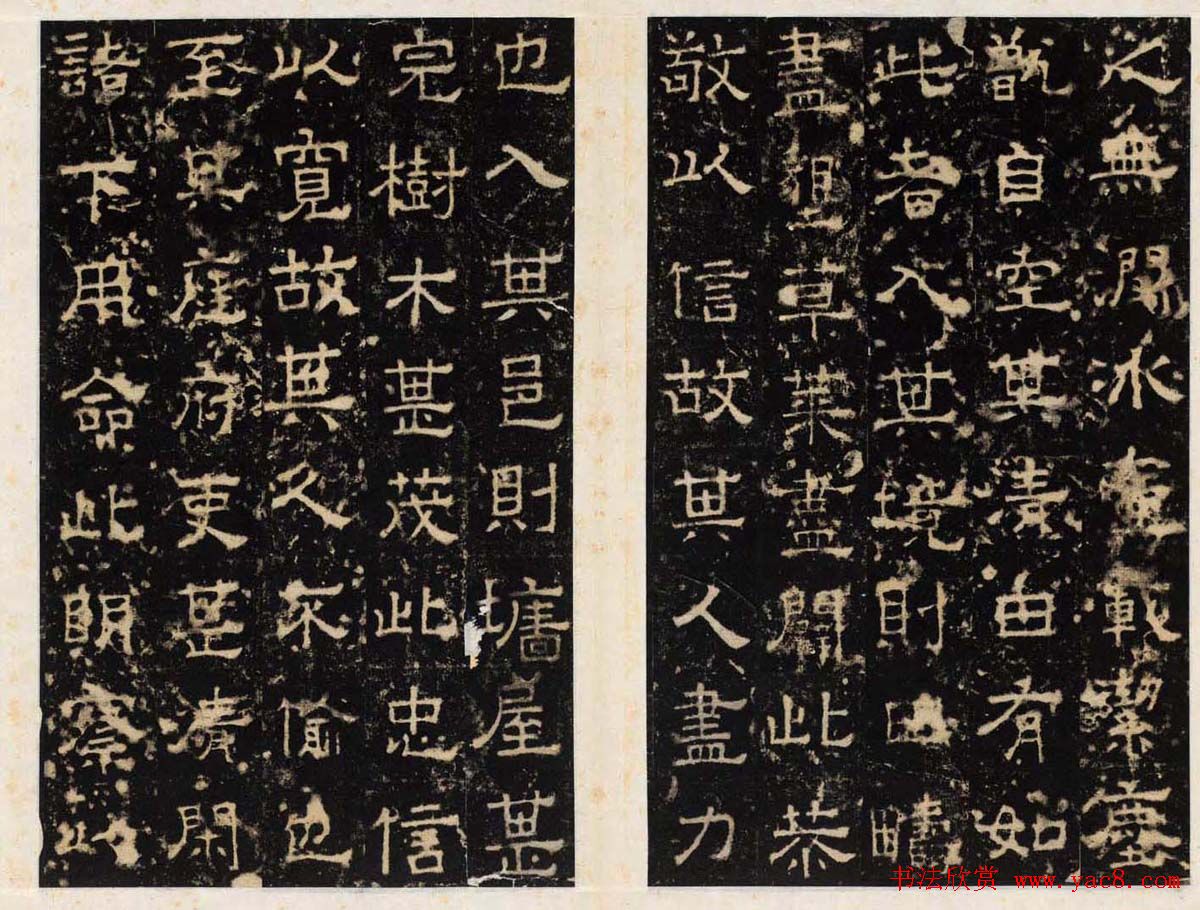 無潔塵
甑自空其清由有如
此者入其境則田疇
盡墾草萊盡闢此恭
敬以信故其人盡力
也入其邑則墻屋甚
完樹木甚茂此忠信
以寬故其人不偷也
至其庭府吏甚清閑
諸下用命此明察此
书法欣赏 www.yac8.com